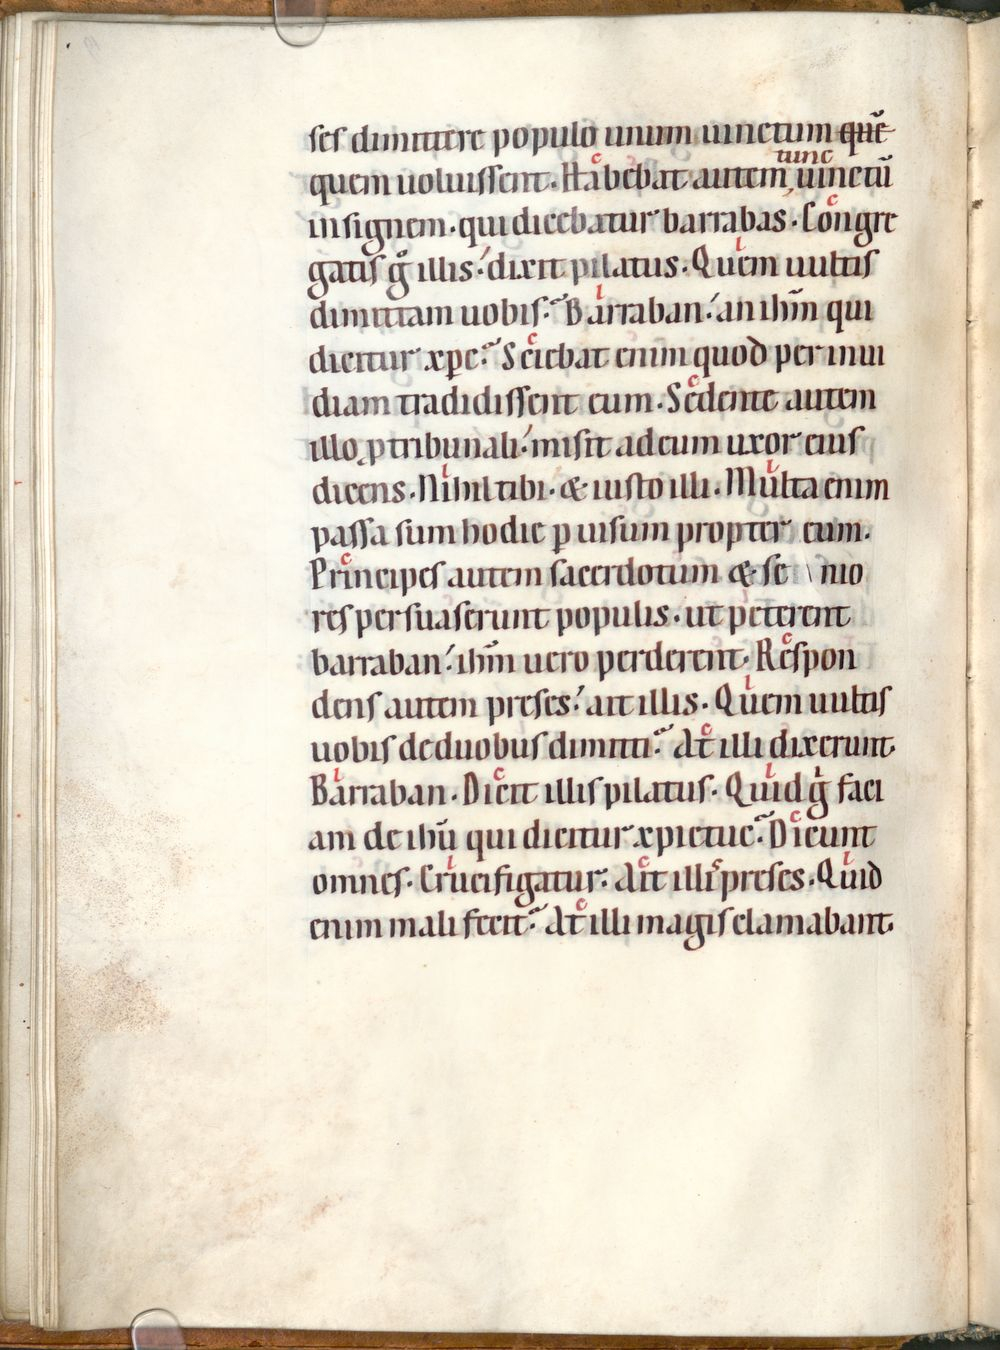 ses dimittere populo unum uinctum quē
quem uoluissent. Habebat autem tunc uinctū
insignem. qui dicebatur barrabas. Congre
gatis g̊ illis. dixit pilatus. Quem uultis
dimittam uobis? Barraban. an ihm̄ qui
dicitur xp̄c? Sciebat enim quod per inui
diam tradidissent eum. Sedente autem
illo ꝓ tribunali. misit ad eum uxor eius
dicens. Nihil tibi. & iusto illi. Multa enim
passa sum hodie ꝑ uisum propter eum.
Principes autem sacerdotum & se nio
res persuaserunt populis. ut peterent
barraban. ihm̄ uero perderent. Respon
dens autem preses. ait illis. Quem uultis
uobis de duobus dimitti? At illi dixerunt.
Barraban. Dicit illis pilatus. Quid g̊ faci
am de ihū qui dicitur xpictuc? Dicunt
omnes. Crucifigatur. Ait illis preses. Quid
enim mali fecit? At illi magis clamabant.